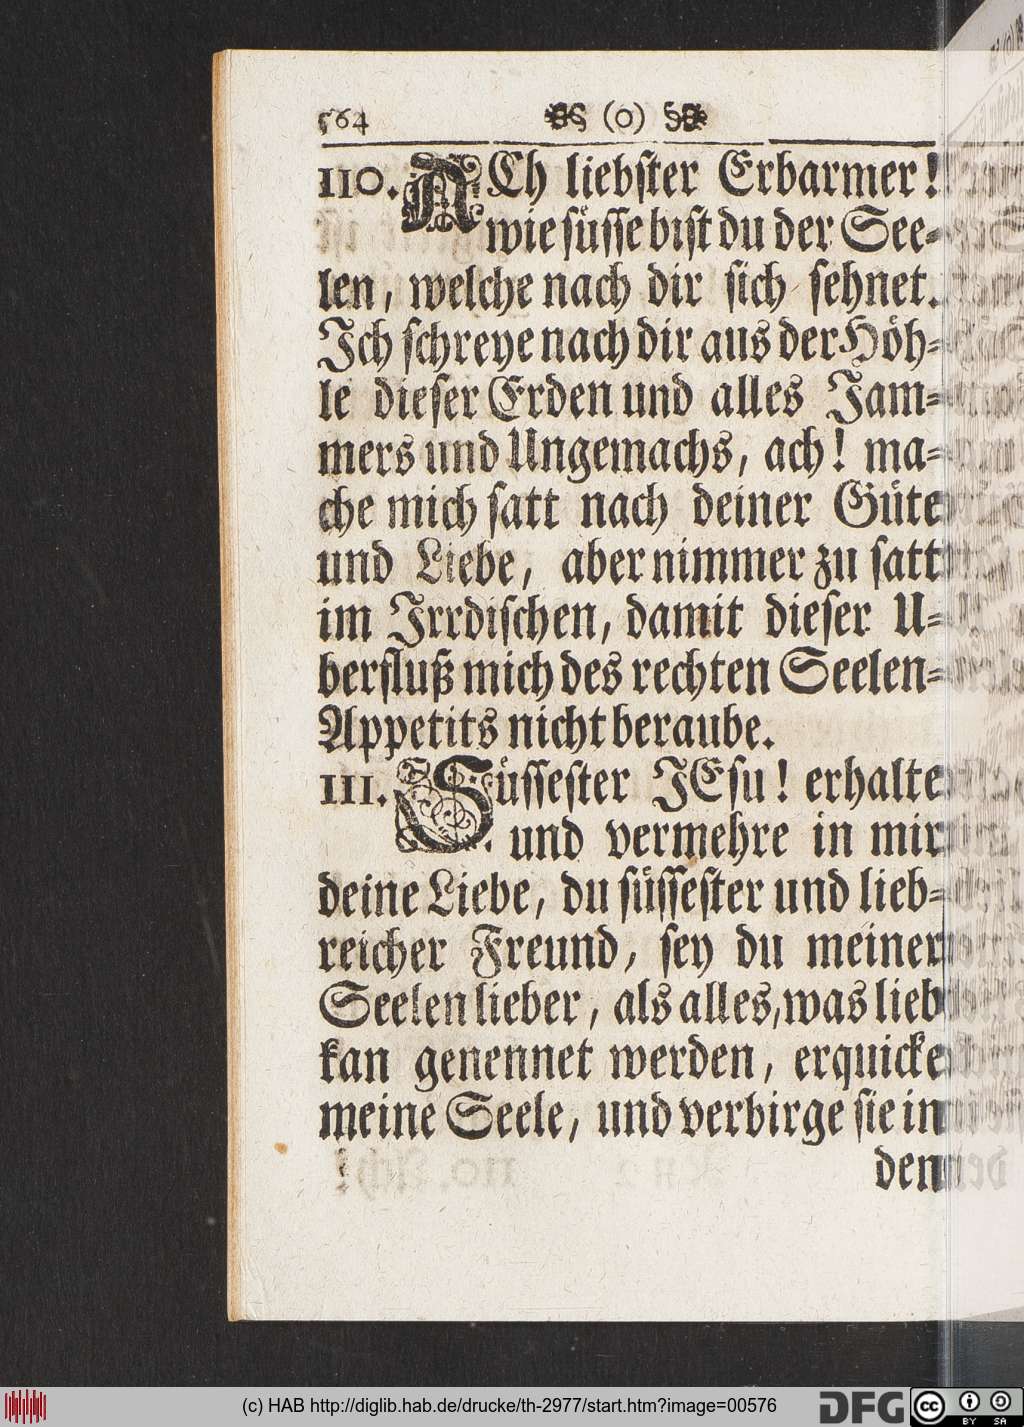 564 (0)
110. ACh liebster Erbarmer!
wie süsse bist du der See-
len, welche nach dir sich sehnet.
Ich schreye nach dir aus der Höh-
le dieser Erden und alles Jam-
mers und Ungemachs, ach! ma-
che mich satt nach deiner Güte
und Liebe, aber nimmer zu satt
im Irrdischen, damit dieser U-
berfluß mich des rechten Seelen-
Appetits nicht beraube.
111. Süssester JEsu! erhalte
und vermehre in mir
deine Liebe, du süssester und lieb-
reicher Freund, sey du meiner
Seelen lieber, als alles, was lieb
kan genennet werden, erquicke
meine Seele, und verbirge sie in
den
(c) HAB http://diglib.hab.de/drucke/th-2977/start.htm?image=00576
DFG
cc BY SA